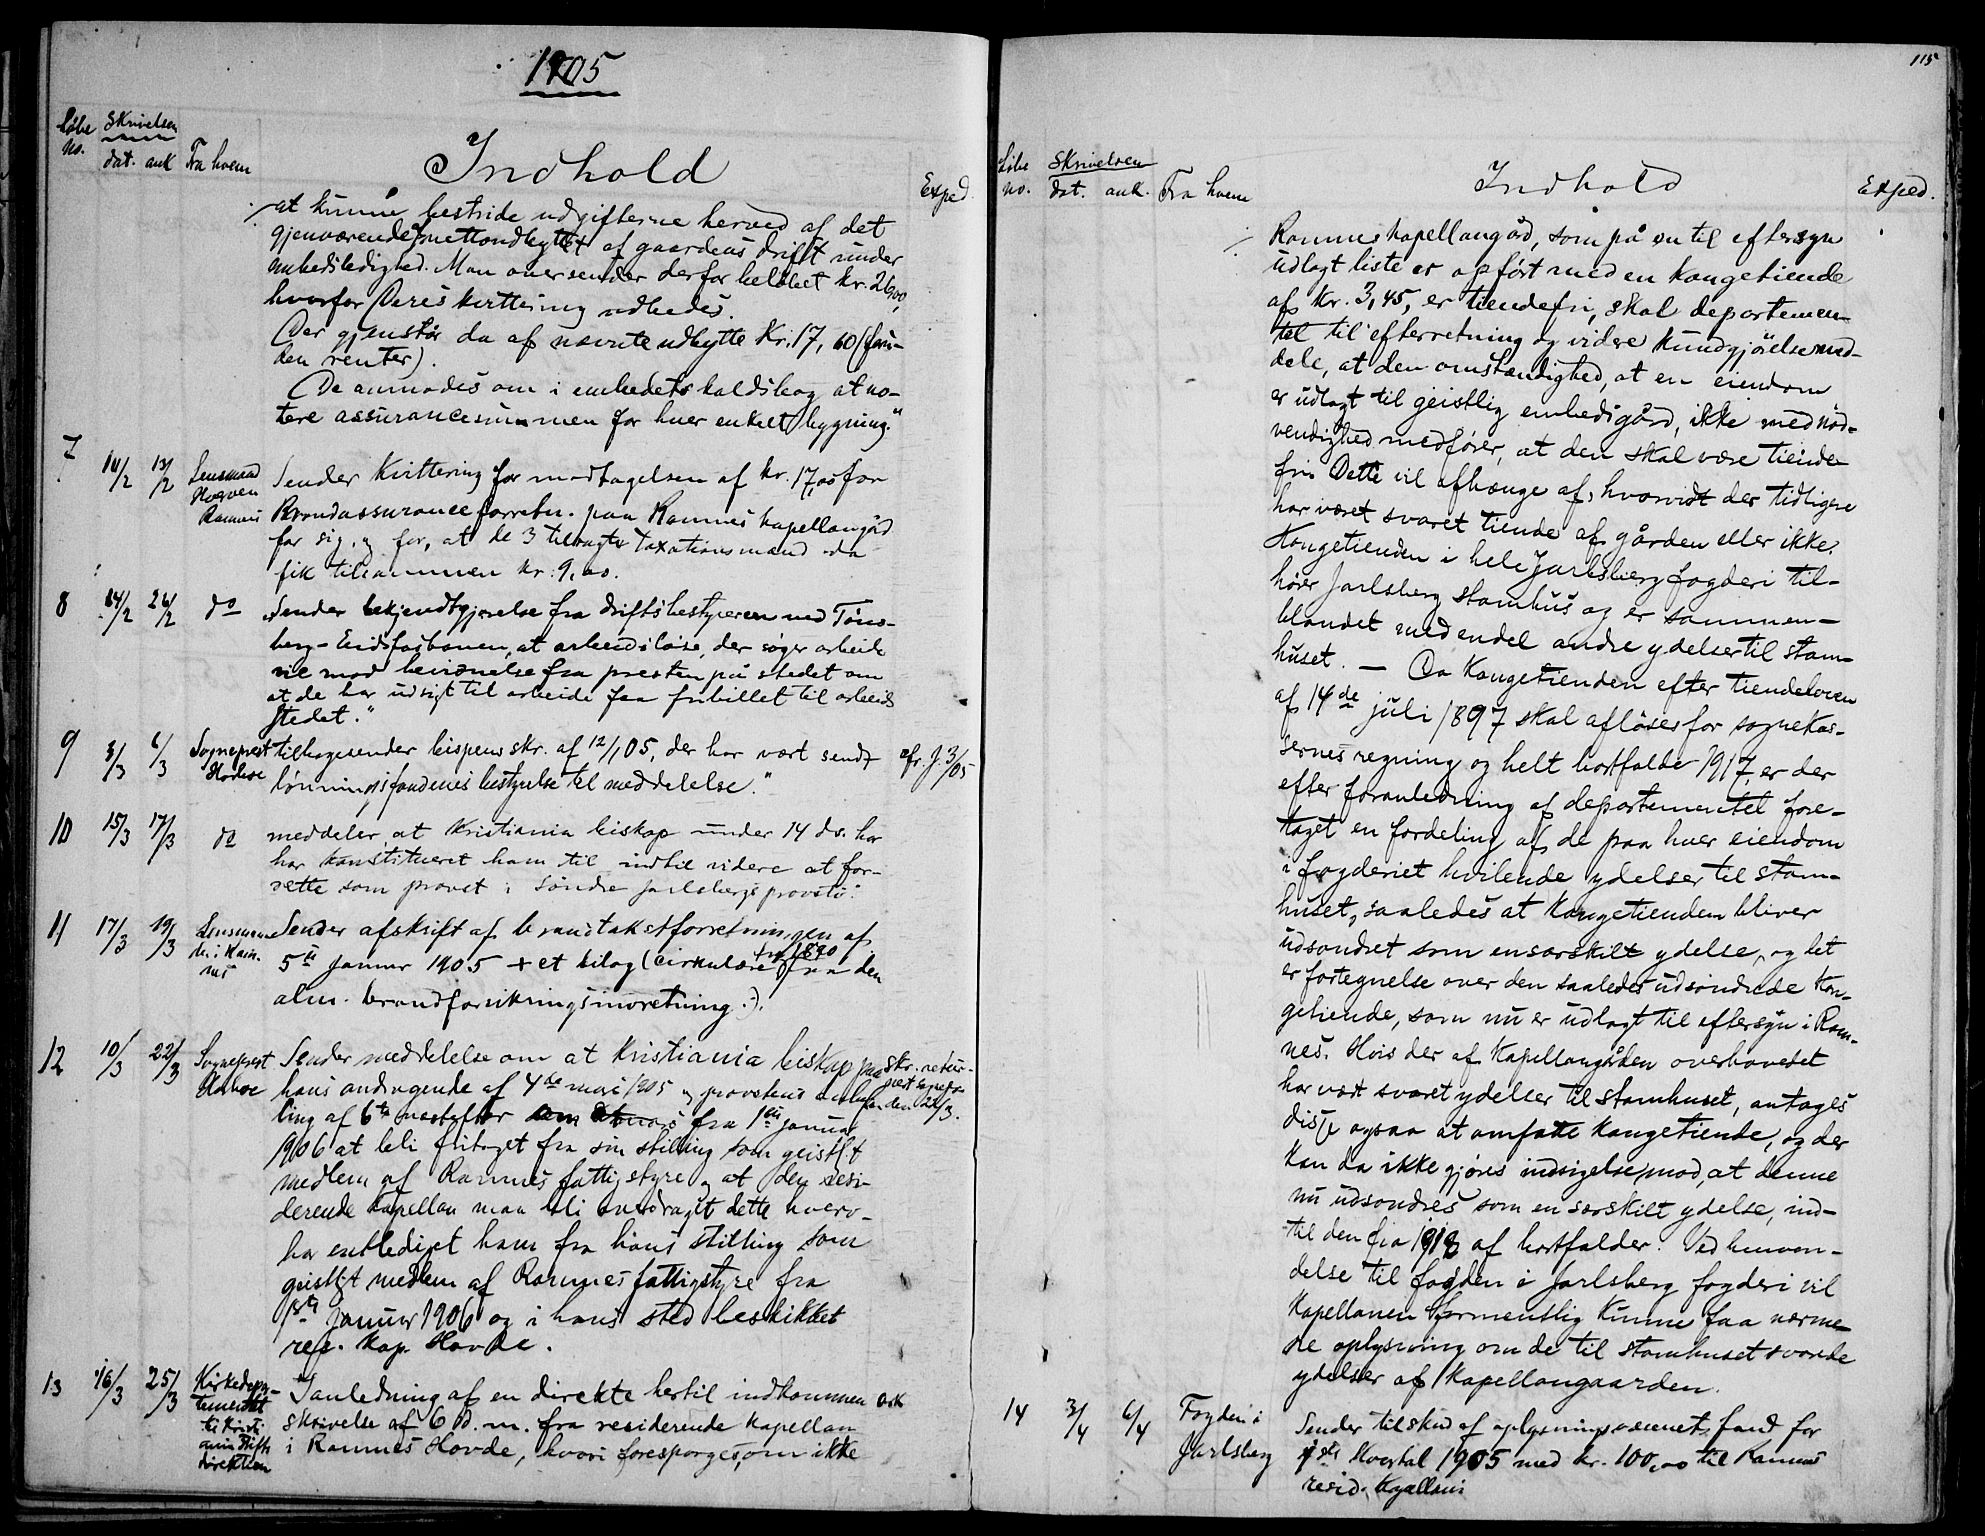 1905
Løbe no. Skrivelsen dat. ank Fra hvem
Indhold
Exped.
at kunne bestride udgifterne herved af det
gjenværende nettoudbytte af gaardens drift under
embedsledighed. Man oversender derfor beløbet kr. 26,00,
hvorfor Deres kvittering udbedes.
Der gjenstår da af nævnte udbytte Kr. 17,60 (foru-
den renter).
De anmodes om i embedets kaldsbog at no-
tere assurancesummen for hver enkelt bygning."
7 10/2 13/2 Lensmand Ramnes Sender Kvittering for modtagelsen af kr. 17,00 for
Brandassuranceforretn. paa Ramnes kapellangård
for sig, og for, at de 3 tilsagte Taxationsmænd da
fik tilsammen kr. 9,00.
8 14/2 24/2 do Sender bekjendtgjørelse fra driftsbestyreren ved Tøns-
berg-Eidsfosbanen, at arbeidsløse, der søger arbeide
vil mod bevidnelse fra presten på stedet om
at de har udsigt til arbeide faa fribillet til arbeids
stedet."
9 3/3 6/3 Sogneprest Horboe tilbagesender bispens skr. af 12/1 05, der har vært sendt cfr. J. 3/05
lønningsfondenes bestyrelse til meddelelse."
10 15/3 17/3 do meddeler, at Kristiania biskop under 14 ds. har
har konstitueret ham til indtil videre at for-
rette som provst i Søndre Jarlsbergs provsti.
11 17/3 19/3 Lensmanden i Ram-
nes Sender afskrift af brandtakstforretningen af
5te Januar 1905 + et bilag (cirkulære fra den
alm. brandforsikringsindretning.).
12 10/3 22/3 Sogneprest Horboe Sender meddelelse om at Kristiania biskop paa skr. retur-
hans andragende af 4de mars 1905 og provstens anbefa- den 22/3.
ling af 6te næstefter fra 1ste januar
1906 at bli fritaget fra sin stilling som geistligt
medlem af Ramnes fattigstyre og at den resi-
derende kapellan maa bli overdraget dette hverv -
har entlediget ham fra hans stilling som
geistligt medlem af Ramnes fattigstyre fra
1ste Januar 1906 og i hans sted beskikket
res. kap. Hovde.
13 16/3 25/3 Kirkedepar-
tementet
til Kristi-
ania Stifts
direktion I anledning af en direkte hertil indkommen
skrivelse af 6 d. m. fra residerende kapellan
i Ramnes Hovde, hvori forespørges, om ikke
115
Løbe no. Skrivelsen dat. ank. Fra hvem
Indhold
Exped.
Ramnes kapellangård, som på en til eftersyn
udlagt liste er opført med en kongetiende
af kr. 3,45, er tiendefri, skal departemen-
tet til efterretning og videre kundgjørelse med-
dele, at den omstændighed, at en eiendom
er udlagt til geistlig embedsgård, ikke med nød-
vendighed medfører, at den skal være tiende-
fri. Dette vil afhænge af, hvorvidt der tidligere
har været svaret tiende af gården eller ikke.
Kongetienden i hele Jarlsberg fogderi til-
hører Jarlsberg stamhus og er sammen-
blandet med endel andre ydelser til stam-
huset. — Da Kongetienden efter tiendeloven
af 14de juli 1897 skal afløses for sognekas-
sernes regning og helt bortfalde 1917, er der
efter foranledning af departementet fore-
taget en fordeling af de paa hver eiendom
i fogderiet hvilende ydelser til stam-
huset, saaledes at Kongetienden bliver
udsondret som en særskilt ydelse, og det
er fortegnelse over den saaledes udsondrede Kon-
getiende, som nu er udlagt til eftersyn i Ram-
nes. Hvis der af Kapellangården overhovedet
har vært svaret ydelser til stamhuset, antages
disse ogsaa at omfatte Kongetiende, og der
kan da ikke gjøres indsigelse mod, at denne
nu udsondres som en særskilt ydelse, ind-
til den fra 1918 af bortfalder. Ved henven-
delse til fogden i Jarlsberg fogderi vil
Kapellanen formentlig kunne faa nærme-
re oplysning om de til stamhuset svarede
ydelser af Kapellangaarden.
14 3/4 6/4 Fogden i
Jarlsberg Sender tilskud af oplysningsvæsenets fond for
1ste Kvartal 1905 med kr. 100,00 til Ramnes
resid. kapellani